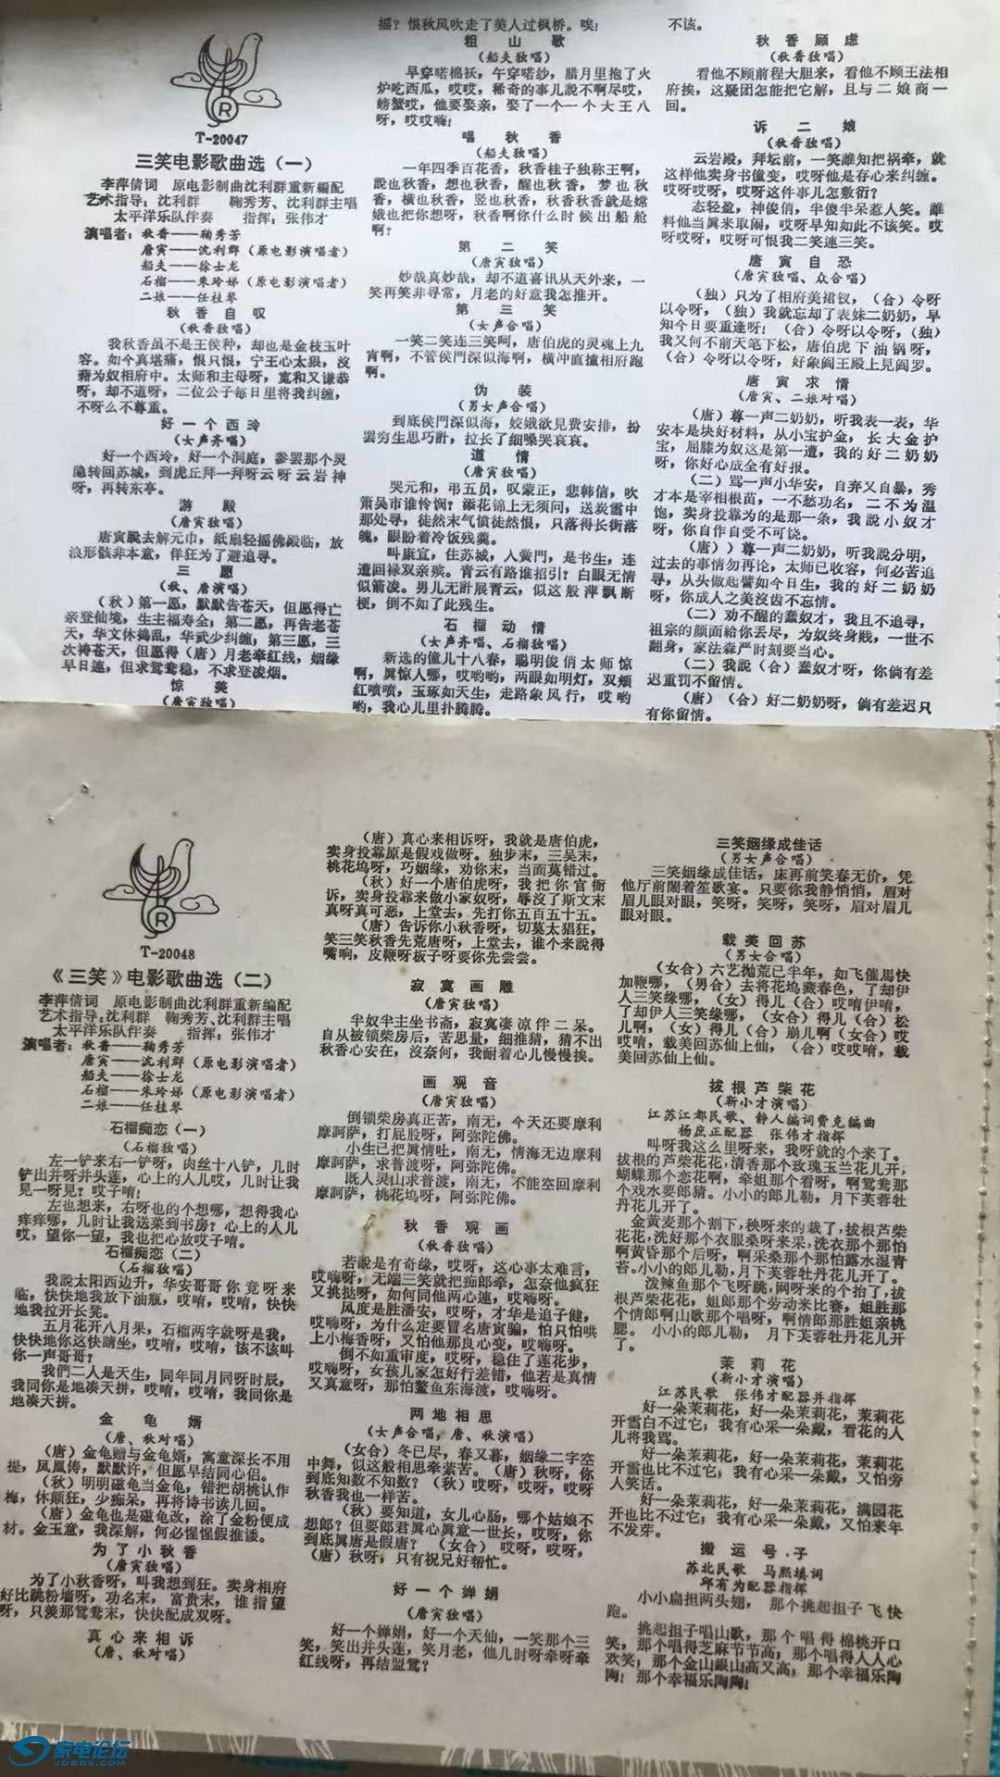 T-20047
三笑电影歌曲选（一）
李萍倩词　原电影制曲沈利群重新编配
艺术指导：沈利群　鞠秀芳、沈利群主唱
太平洋乐队伴奏　指挥：张伟才
演唱者：秋香——鞠秀芳
唐寅——沈利群（原电影演唱者）
船夫——徐士龙
石榴——朱玲娣（原电影演唱者）
二娘——任桂琴
秋香自叹
（秋香独唱）
我秋香虽不是王侯种，却也是金枝玉叶
容。如今真堪痛，恨只恨，宁王心太狠，沒
藉为奴相府中。太师和主母呀，寬和又谦恭
呀，却不道呀，二位公子每日里将我纠缠，
不呀么不尊重。
好一个西玲
（女声齐唱）
好一个西玲，好一个洞庭，参罢那个灵
隐转回苏城，到虎丘拜一拜呀云呀云岩神
呀，再转东亭。
游殿
（唐寅独唱）
唐寅脫去解元巾，纸扇轻摇佛殿临，放
浪形骸非本意，佯狂为了避追寻。
三愿
（秋、唐演唱）
（秋）第一愿，默默告苍天，但愿得亡
亲登仙境，生主福寿全；第二愿，再告老苍
天，华文休捣乱，华武少纠缠；第三愿，三
次祷苍天，但愿得（唐）月老牵红线，姻缘
早日連，但求鸳鸯稳，不求登凌烟。
惊美
（唐寅独唱）
摇？恨秋风吹走了美人过枫桥。唉！
粗山歌
（船夫独唱）
早穿喏棉袄，午穿喏纱，腊月里抱了火
炉吃西瓜，哎哎，稀奇的事儿說不啊尽哎，
螃蟹哎，他要娶亲，娶了一个一个大王八
呀，哎哎嗨！
唱秋香
（船夫独唱）
一年四季百花香，秋香桂子独称王啊，
說也秋香，想也秋香，醒也秋香，梦也秋
香，橫也秋香，竖也秋香，秋香秋香就是嫦
娥也把你想呀，秋香啊你什么时候出船舱
啊？
第二笑
（唐寅独唱）
妙哉真妙哉，却不道喜讯从天外来，一
笑再笑非寻常，月老的好意我怎推开。
第三笑
（女声合唱）
一笑二笑连三笑呵，唐伯虎的灵魂上九
宵啊，不管侯門深似海啊，橫冲直撞相府跑
啊。
伪装
（男女声合唱）
到底侯門深似海，姣娥欲見费安排，扮
罢穷生思巧酐，拉长了细嗓哭哀哀。
道情
（唐寅独唱）
哭元和，弔五员，叹蒙正，悲韩信，吹
箫吴市谁怜悯？添花锦上无须问，送炭雷中
那处寻，徒然末气愤徒然恨，只落得长街落
魄，眼盼着冷饭残羹。
叫康宣，住苏城，入黉門，是书生，连
遭回禄双亲殡。青云有路谁招引？白眼无情
似箭凌。男儿无酐展青云，似这般萍飘断
梗，倒不如了此残生。
石榴动情
（女声齐唱、石榴独唱）
新选的僮儿十八春，聪明俊俏太师惊
啊，異惊人哪，哎哟哟，两眼如明灯，双頰
紅喷喷，玉琢如天生，走路象风行，哎哟
哟，我心儿里扑腾腾。
不该。
秋香顾虑
（秋香独唱）
看他不顾前程大胆来，看他不顾王法相
府挨，这疑团怎能把它解，且与二娘商一
回。
诉二娘
（秋香独唱）
云岩殿，拜坛前，一笑雝知把祸牵，就
这样他卖身书僮变，哎呀他是存心来纠缠。
哎呀哎呀，哎呀这件事儿怎敷衍？
态轻盈，神俊俏，半傻半呆惹人笑。雝
料他当異来取闹，哎呀早知如此不该笑。哎
呀哎呀，哎呀可恨我二笑連三笑。
唐寅自恐
（唐寅独唱、众合唱）
（独）只为了相府美裙钗，（合）令呀
以令呀，（独）我就忘却了表妹二奶奶，早
知今日要重逢呀！（合）令呀以令呀，（独）
我又何不前天笔下松，唐伯虎下油锅呀，
（合）令呀以令呀，好象阎王殿上見阎罗。
唐寅求情
（唐寅、二娘对唱）
（唐）尊一声二奶奶，听我表一表，华
安本是块好材料，从小宝护金，长大金护
宝，屈膝为奴这是第一遭，我的好二奶奶
呀，你好心成全有好报。
（二）骂一声小华安，自弃又自暴，秀
才本是宰相根苗，一不愁功名，二不为温
饱，卖身投靠为的是那一条，我說小奴才
呀，你自作自受不可饶。
（唐））尊一声二奶奶，听我說分明，
过去的事情勿再论，太师已收容，何必苦追
寻，从头做起譬如今日生，我的好二奶奶
呀，你成人之美沒齿不忘情。
（二）劝不醒的蠢奴才，我且不追寻，
祖宗的颜面給你丢尽，为奴终身贱，一世不
翻身，家法森严时刻要当心。
（二）我說（合）蠢奴才呀，你倘有差
迟重罚不留情。
（唐）（合）好二奶奶呀，倘有差迟只
有你留情。
T-20048
《三笑》电影歌曲选（二）
李萍倩词　原电影制曲沈利群重新编配
艺术指导：沈利群　鞠秀芳、沈利群主唱
太平洋乐队伴奏　指挥：张伟才
演唱者：秋香——鞠秀芳
唐寅——沈利群（原电影演唱者）
船夫——徐士龙
石榴——朱玲娣（原电影演唱者）
二娘——任桂琴
石榴痴恋（一）
（石榴独唱）
左一铲来右一铲呀，肉丝十八铲，几时
铲出并呀并头莲，心上的人儿哎，几时让我
見一呀見？哎子唷！
左也想来，右呀也的个想哪，想得我心
痒痒哪，几时让我送菜到书房？心上的人儿
哎，望你一望，我也把心放哎子唷。
石榴痴恋（二）
（石榴独唱）
我說太阳西边升，华安哥哥你竟呀来
临，快快地我放下油瓶，哎唷，哎唷，快快
地我拉开长凳。
五月花开八月果，石榴两字就呀是我，
快快地你这快請坐，哎唷，哎唷，该不该叫
你一声哥哥？
我們二人是天生，同年同月同呀时辰，
我同你是地凑天拼，哎唷，哎唷，我同你是
地凑天拼。
金龟婿
（唐、秋对唱）
（唐）金龟赠与金龟婿，寓意深长不用
提，凤凰俦，默默许，但愿早结同心侣。
（秋）明明磁龟当金龟，错把胡桃认作
梅，休颠狂，少痴呆，再将诗书读几回。
（唐）金龟也是磁龟改，涂了金粉便成
材。金玉意，我深解，何必惺惺假推诿。
为了小秋香
（唐寅独唱）
为了小秋香呀，叫我想到狂。卖身相府
好比跳粉墙呀，功名末，富贵末，谁指望
呀，只羡那鸳鸯末，快快配成双呀。
真心来相诉
（唐、秋对唱）
（唐）真心来相诉呀，我就是唐伯虎，
卖身投靠原是假戏做呀。独步末，三吴末，
桃花坞呀，巧姻缘，劝你末，当面莫错过。
（秋）好一个唐伯虎呀，我把你官衙
诉，卖身投靠来做小家奴呀，辱沒了斯文末
真呀真可恶，上堂去，先打你五百五十五。
（唐）告诉你小秋香呀，切莫太猖狂，
笑三笑秋香先荒唐呀，上堂去，谁个来說得
嘴响，皮鞭呀板子呀要你先尝尝。
寂寞画雕
（唐寅独唱）
半奴半主坐书斋，寂寞凄凉伴二呆。
自从被锁柴房后，苦思量，细推猜，猜不出
秋香心安在，沒奈何，我耐着心儿慢慢挨。
画观音
（唐寅独唱）
倒锁柴房真正苦，南无，今天还要摩利
摩訶萨，打屁股呀，阿弥陀佛。
小生已把異情吐，南无，情海无边摩利
摩訶萨，求普渡呀，阿弥陀佛。
既人灵山求普渡，南无，不能空回摩利
摩訶萨，桃花坞呀，阿弥陀佛。
秋香观画
（秋香独唱）
若說是有奇缘，哎呀，这心事太难言，
哎嗨呀，无端三笑就把痴郎牵，怎奈他疯狂
又挑挞呀，如何同他两心連，哎嗨呀。
风度是胜潘安，哎呀，才华是追子健，
哎嗨呀，为什么定要冒名唐寅骗，怕只怕哄
上小梅香呀，又怕他那良心变，哎嗨呀。
倒不如重审度，哎呀，稳住了莲花步，
哎嗨呀，女孩儿家怎好行差错，他若是真情
又真意呀，那怕鳌鱼东海渡，哎嗨呀。
两地相思
（女声合唱，唐、秋演唱）
（女合）冬已尽，春又暮，姻缘二字空
中舞，似这般相思牵萦苦。（唐）秋呀，你
到底知数不知数？（秋）哎呀，哎呀，哎呀
秋香我也一样苦。
（秋）要知道，女儿心肠，哪个姑娘不
想郎？但要郎君異心異意一世长，哎呀，你
到底異唐是假唐？（女合）哎呀，哎呀，
（唐）秋呀，只有祝兄好帮忙。
好一个婵娟
（唐寅独唱）
好一个婵娟，好一个天仙，一笑那个三
笑，笑出并头莲，笑月老，他几时呀牵呀牵
红线呀，再结盟鸳？
三笑姻缘成佳话
（男女声合唱）
三笑姻缘成佳话，床再前笑春无价，凭
他厅前閙着笙歌宴。只要你我静悄悄，眉对
眉儿眼对眼，笑呀，笑呀，笑呀，眉对眉儿
眼对眼。
载美回苏
（男女合唱）
（女合）六艺抛荒已半年，如飞催馬快
加鞭哪，（男合）去将花坞藏春色，了却伊
人三笑缘哪，（女）得儿（合）哎唷伊唷，
了却伊人三笑缘哪，（女合）得儿（合）松
儿啊，（女）得儿（合）崩儿啊（女合）哎
哎唷，载美回苏仙上仙，（合）哎哎唷，载
美回苏仙上仙。
拔根芦柴花
（靳小才演唱）
江苏江都民歌、静人编词费克编曲
杨庶正配器　张伟才指挥
叫呀我这么里呀来，我呀就的个来了。
拔根的芦柴花花，清香那个玫瑰玉兰花儿开，
蝴蝶那个恋花啊，牵姐那个看呀，啊鸳鸯那
个戏水要郎猜。小小的郎儿勒，月下芙蓉牡
丹花儿开了。
金黄麦那个割下，秧呀来的栽了，拔根芦柴
花花，洗好那个衣服桑呀来采，洗衣那个那怕
啊黄昏那个后呀，啊采桑那个那怕露水湿青
苔。小小的郎儿勒，月下芙蓉牡丹花儿开了。
泼辣鱼那个飞呀跳，网呀来的个抬了，拔
根芦柴花花，姐郎那个劳动来比赛，姐胜那
个情郎啊山歌那个唱呀，啊情郎那胜姐亲桃
腮。小小的郎儿勒，月下芙蓉牡丹花儿开
了。
茉莉花
（靳小才演唱）
江苏民歌　张伟才配器并指挥
好一朵茉莉花，好一朵茉莉花，茉莉花
开雪白不过它；我有心采一朵戴，看花的人
儿将我骂。
好一朵茉莉花，好一朵茉莉花，茉莉花
开雪也比不过它；我有心采一朵戴，又怕旁
人笑话。
好一朵茉莉花，好一朵茉莉花，满园花
开也比不过它；我有心采一朵戴，又怕来年
不发芽。
搬运号子
苏北民歌　马熙填词
邱有为配器指挥
小小扁担两头翘，那个挑起担子飞快
跑。
挑起担子唱山歌，那个唱得棉桃开口
笑，那个唱得芝麻节节高，那个唱得人人心
欢笑，那个金山銀山高又高，那个幸福乐陶
陶！那个幸福乐陶陶！
家电论坛
JDBBS.COM